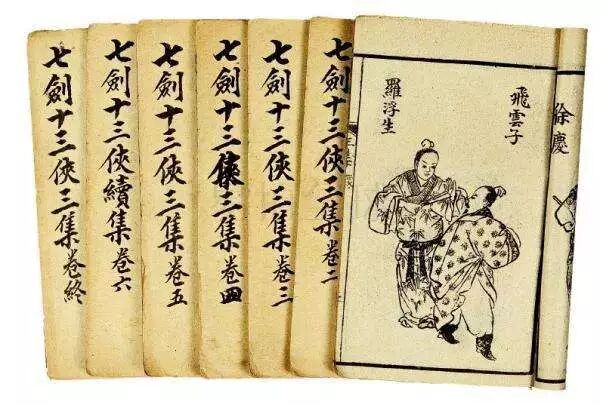 徐慶
飛雲子
羅浮生
七劍十三俠三集卷二
七劍十三俠三集卷三
七劍十三俠三集卷四
七劍十三俠三集卷五
七劍十三俠續集卷六
七劍十三俠三集卷終